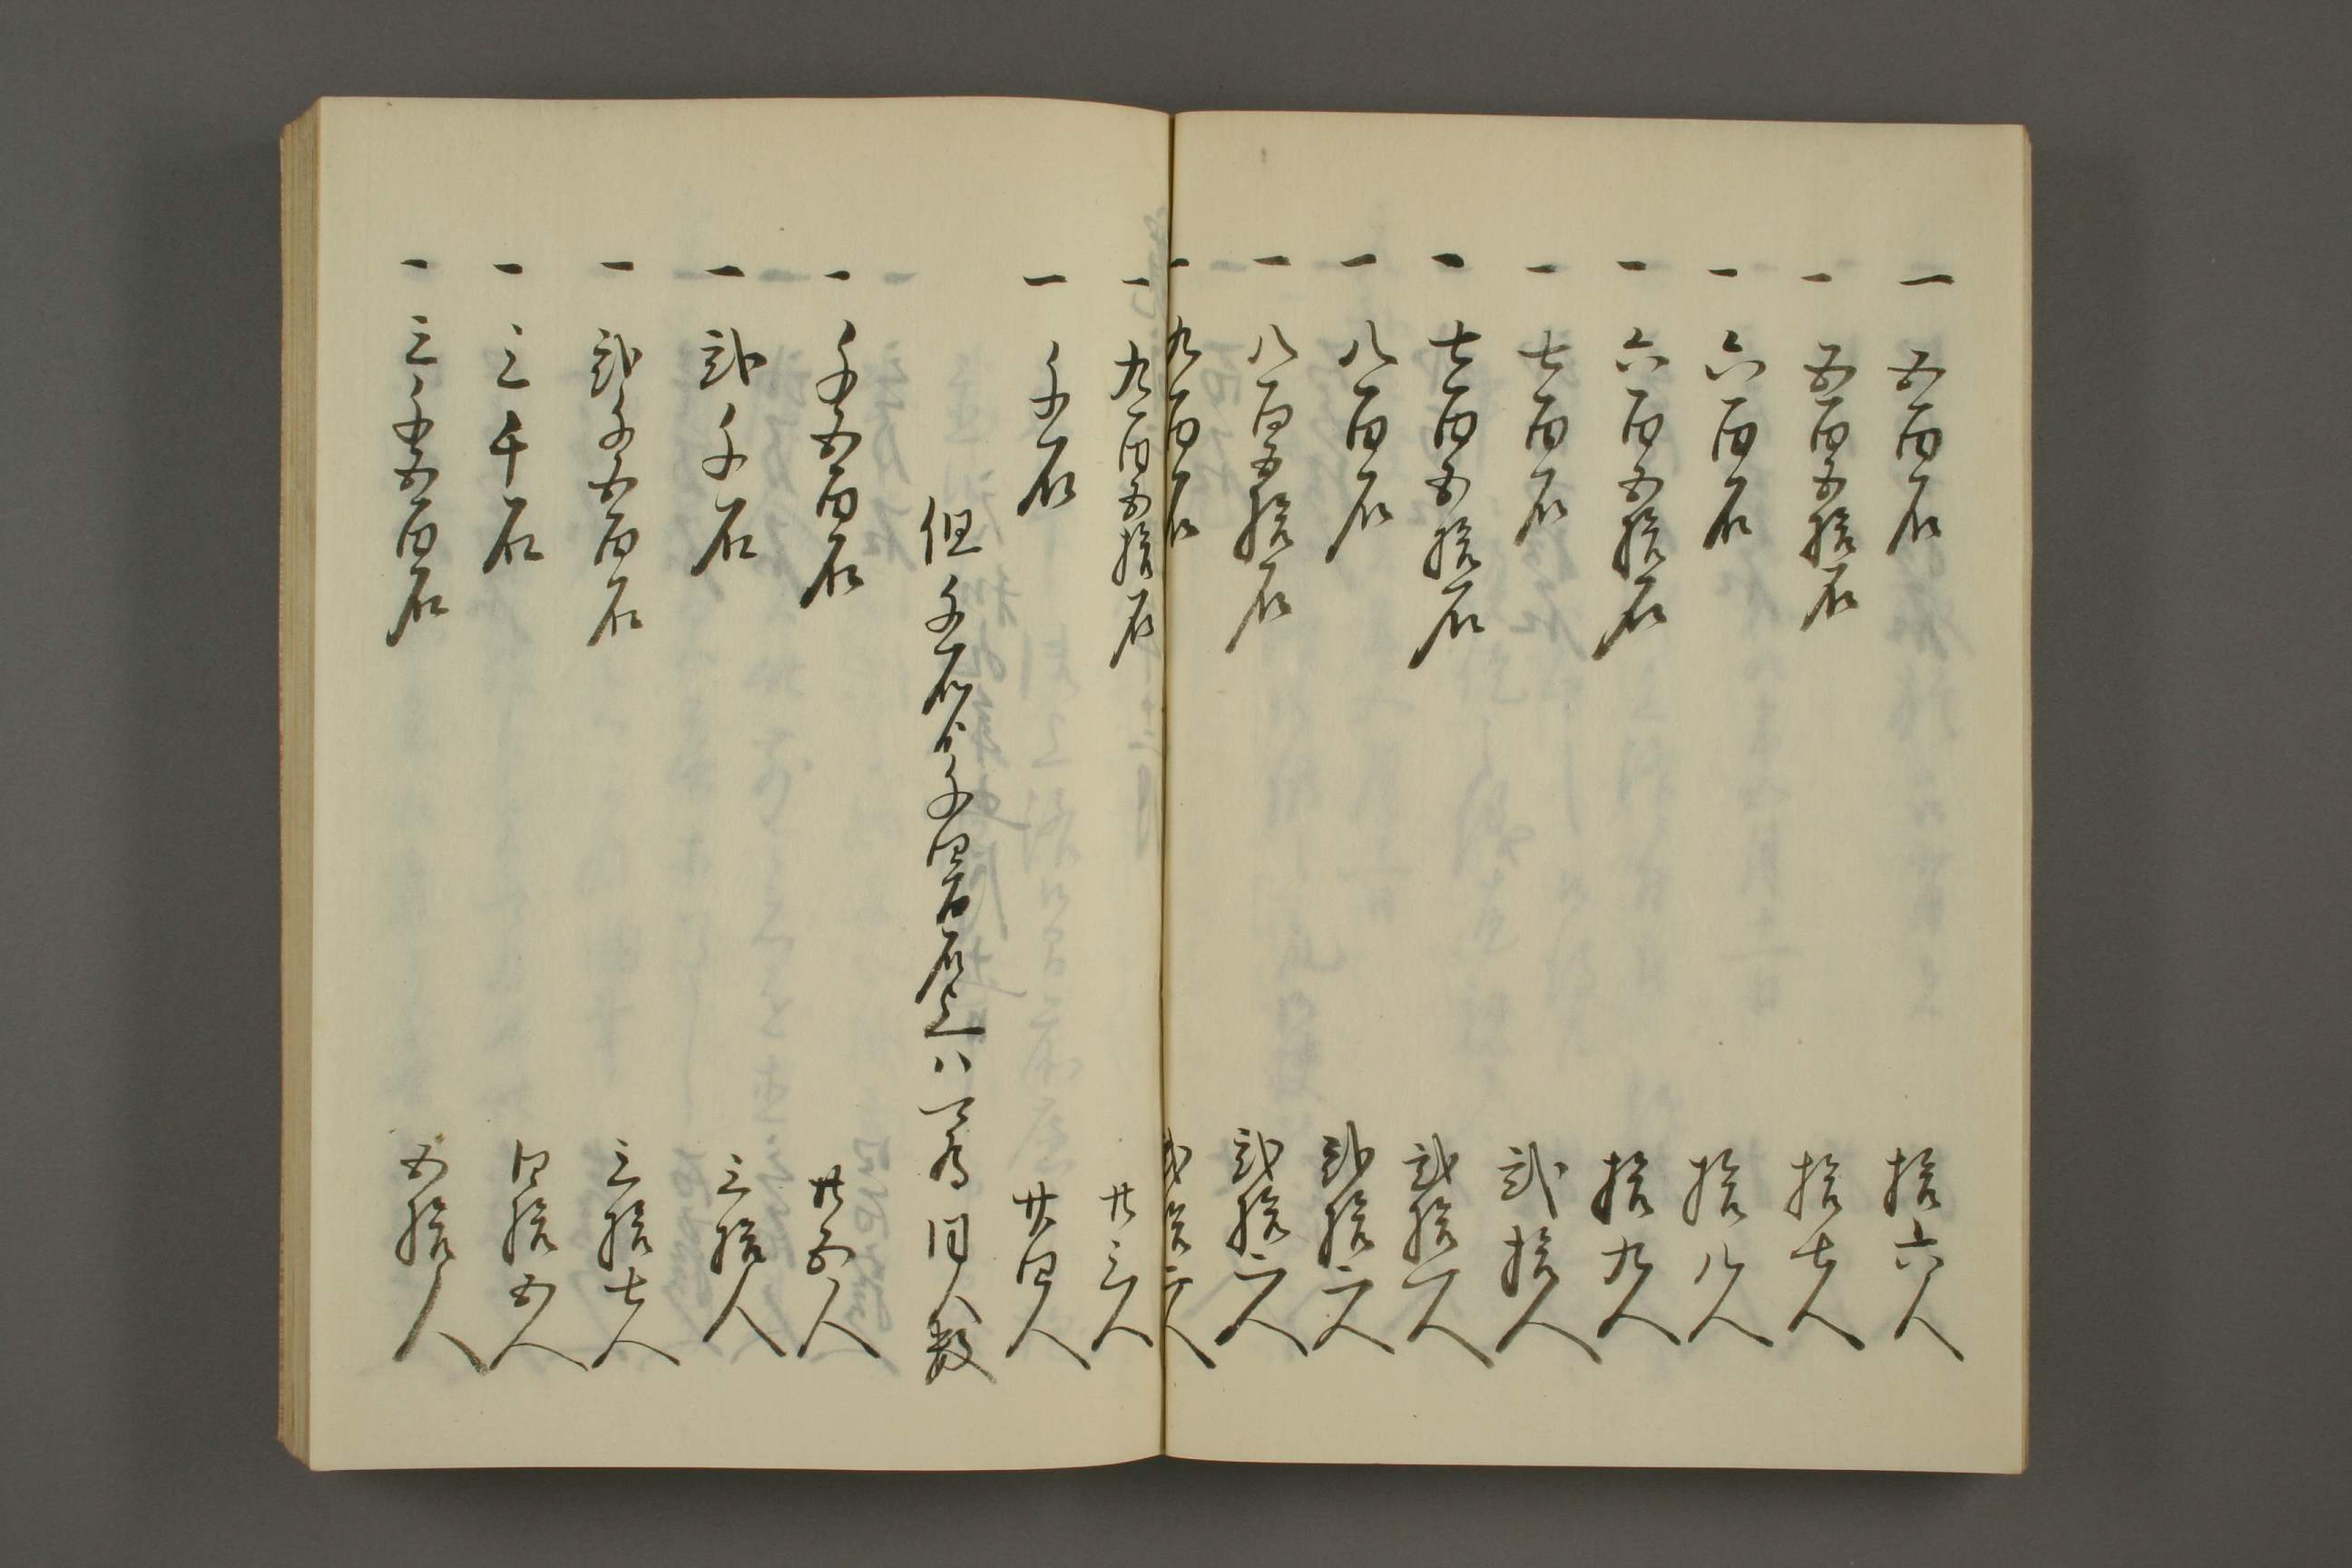 一 五百石 拾六人
一 五百五拾石 拾七人
一 六百石 拾八人
一 六百五拾石 拾九人
一 七百石 弐拾人
一 七百五拾石 弐拾一人
一 八百石 弐拾二人
一 八百五拾石 弐拾二人
一 九百石 弐拾三人
一 九百五拾石 廿三人
一 千石 廿四人
但千石ゟ千四百石迄ハ可為同人数
一 千五百石 廿五人
一 弐千石 三拾人
一 弐千五百石 三拾七人
一 三千石 四拾五人
一 三千五百石 五拾人